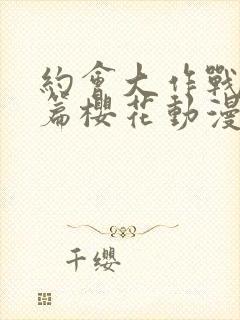 約會大作戰
篇櫻花動漫
千纓